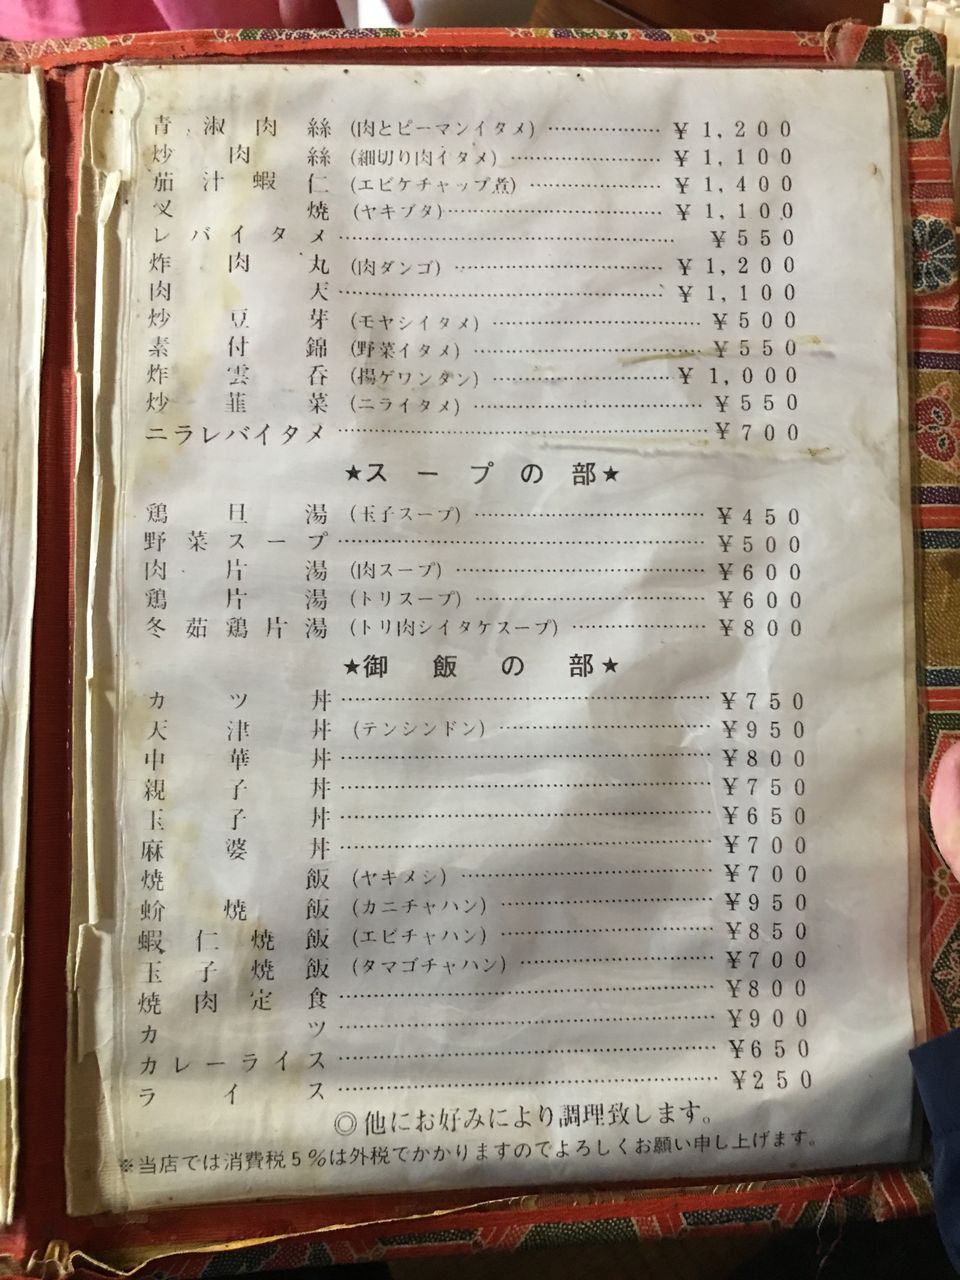 青淑肉絲 (肉とピーマンイタメ) ………………… ¥1,200
炒肉絲 (細切り肉イタメ) ………………… ¥1,100
茄汁蝦仁 (エビケチャップ煮) ………………… ¥1,400
叉焼 (ヤキブタ) ………………… ¥1,100
レバイタメ ………………… ¥550
炸肉丸 (肉ダンゴ) ………………… ¥1,200
肉天 ………………… ¥1,100
炒豆芽 (モヤシイタメ) ………………… ¥500
素付錦 (野菜イタメ) ………………… ¥550
炸雲呑 (揚ゲワンタン) ………………… ¥1,000
炒韮菜 (ニライタメ) ………………… ¥550
ニラレバイタメ ………………… ¥700
★スープの部★
鶏旦湯 (玉子スープ) ………………… ¥450
野菜スープ ………………… ¥500
肉片湯 (肉スープ) ………………… ¥600
鶏片湯 (トリスープ) ………………… ¥600
冬茹鶏片湯 (トリ肉シイタケスープ) ………………… ¥800
★御飯の部★
カツ丼 ………………… ¥750
天津丼 (テンシンドン) ………………… ¥950
中華丼 ………………… ¥800
親子丼 ………………… ¥750
玉子丼 ………………… ¥650
麻婆丼 ………………… ¥700
焼飯 (ヤキメシ) ………………… ¥700
蚧焼飯 (カニチャハン) ………………… ¥950
蝦仁焼飯 (エビチャハン) ………………… ¥850
玉子焼飯 (タマゴチャハン) ………………… ¥700
焼肉定食 ………………… ¥800
カツ ………………… ¥900
カレーライス ………………… ¥650
ライス ………………… ¥250
◎他にお好みにより調理致します。
※当店では消費税5%は外税でかかりますのでよろしくお願い申し上げます。